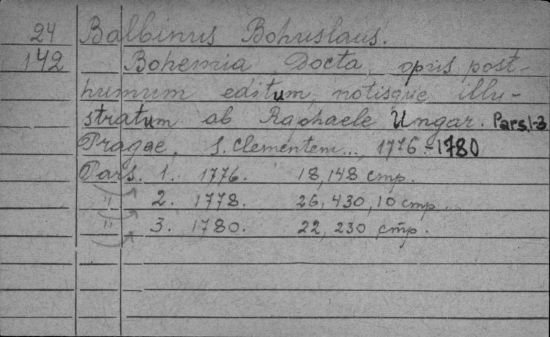 24 Balbinus Bohuslaus.
142 Bohemia Docta, opus post-
humum editum, notisque illu-
stratum ab Raphaele Ungar. Pars, 1-3
Pragae, S. Clementem..., 1776-1780
Pars. 1. 1776. 18, 148 стр.
" 2. 1778. 26, 430, 10 стр.
" 3. 1780. 22, 230 стр.